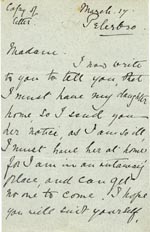 Copy of March 17.
letter Peterboro
Madam.
I now write
to you to tell you that
I must have my daughter
home, so I send you
her notice, as I am so ill
I must have her at home
for I am in an
place, and can get
no one to come. I hope
you will suit yourself.